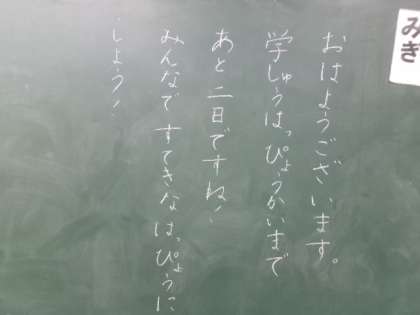 みぎ
おはようございます。
学しゅうはっぴょうかいまで
あと二日ですね！
みんなですてきなはっぴょうに
しよう！